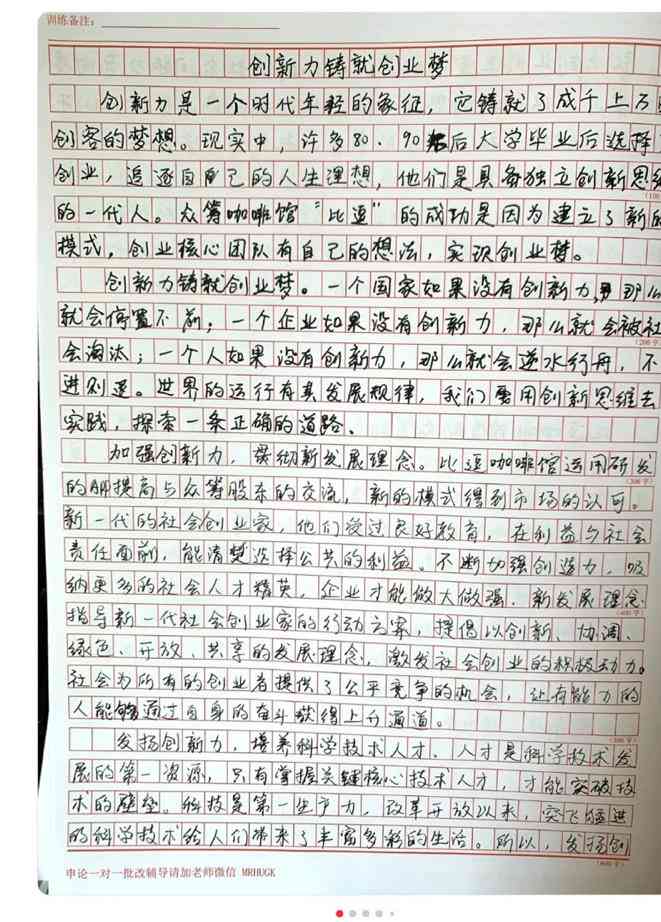 训练备注：
创新力铸就创业梦
创新力是一个时代年轻的象征，它铸就了成千上万
创客的梦想。现实中，许多80、90后大学毕业后选择
创业，追逐自己的人生理想，他们是具备独立创新思维
的一代人。众筹咖啡馆“比逗”的成功是因为建立了新的
模式，创业核心团队有自己的想法，实现创业梦。
创新力铸就创业梦。一个国家如果没有创新力，那么
就会停置不前；一个企业如果没有创新力，那么就会被社
会淘汰；一个人如果没有创新力，那么就会逆水行舟，不
进则退。世界的运行有其发展规律，我们要用创新思维去
实践，探索一条正确的道路、
加强创新力，贯彻新发展理念。比逗咖啡馆运用研发
的APP提高与众筹股东的交流，新的模式得到市场的认可。
新一代的社会创业家，他们受过良好教育，在利益与社会
责任面前，能清楚选择公共的利益。不断加强创造力，吸
纳更多的社会人才精英，企业才能做大做强．新发展理念
指导新一代社会创业家的行动方案，提倡以创新、协调、
绿色、开放、共享的发展理念，激发社会创业的积极动力。
社会为所有的创业者提供了公平竞争的机会，让有能力的
人能够通过自身的奋斗获得上升通道。
发扬创新力，培养科学技术人才．人才是科学技术发
展的第一资源，只有掌握关键核心技术人才，才能突破技
术的壁垒。科技是第一生产力，改革开放以来，突飞猛进
的科学技术给人们带来了丰富多彩的生活。所以，发扬创
申论一对一批改辅导请加老师微信 MRHUGK